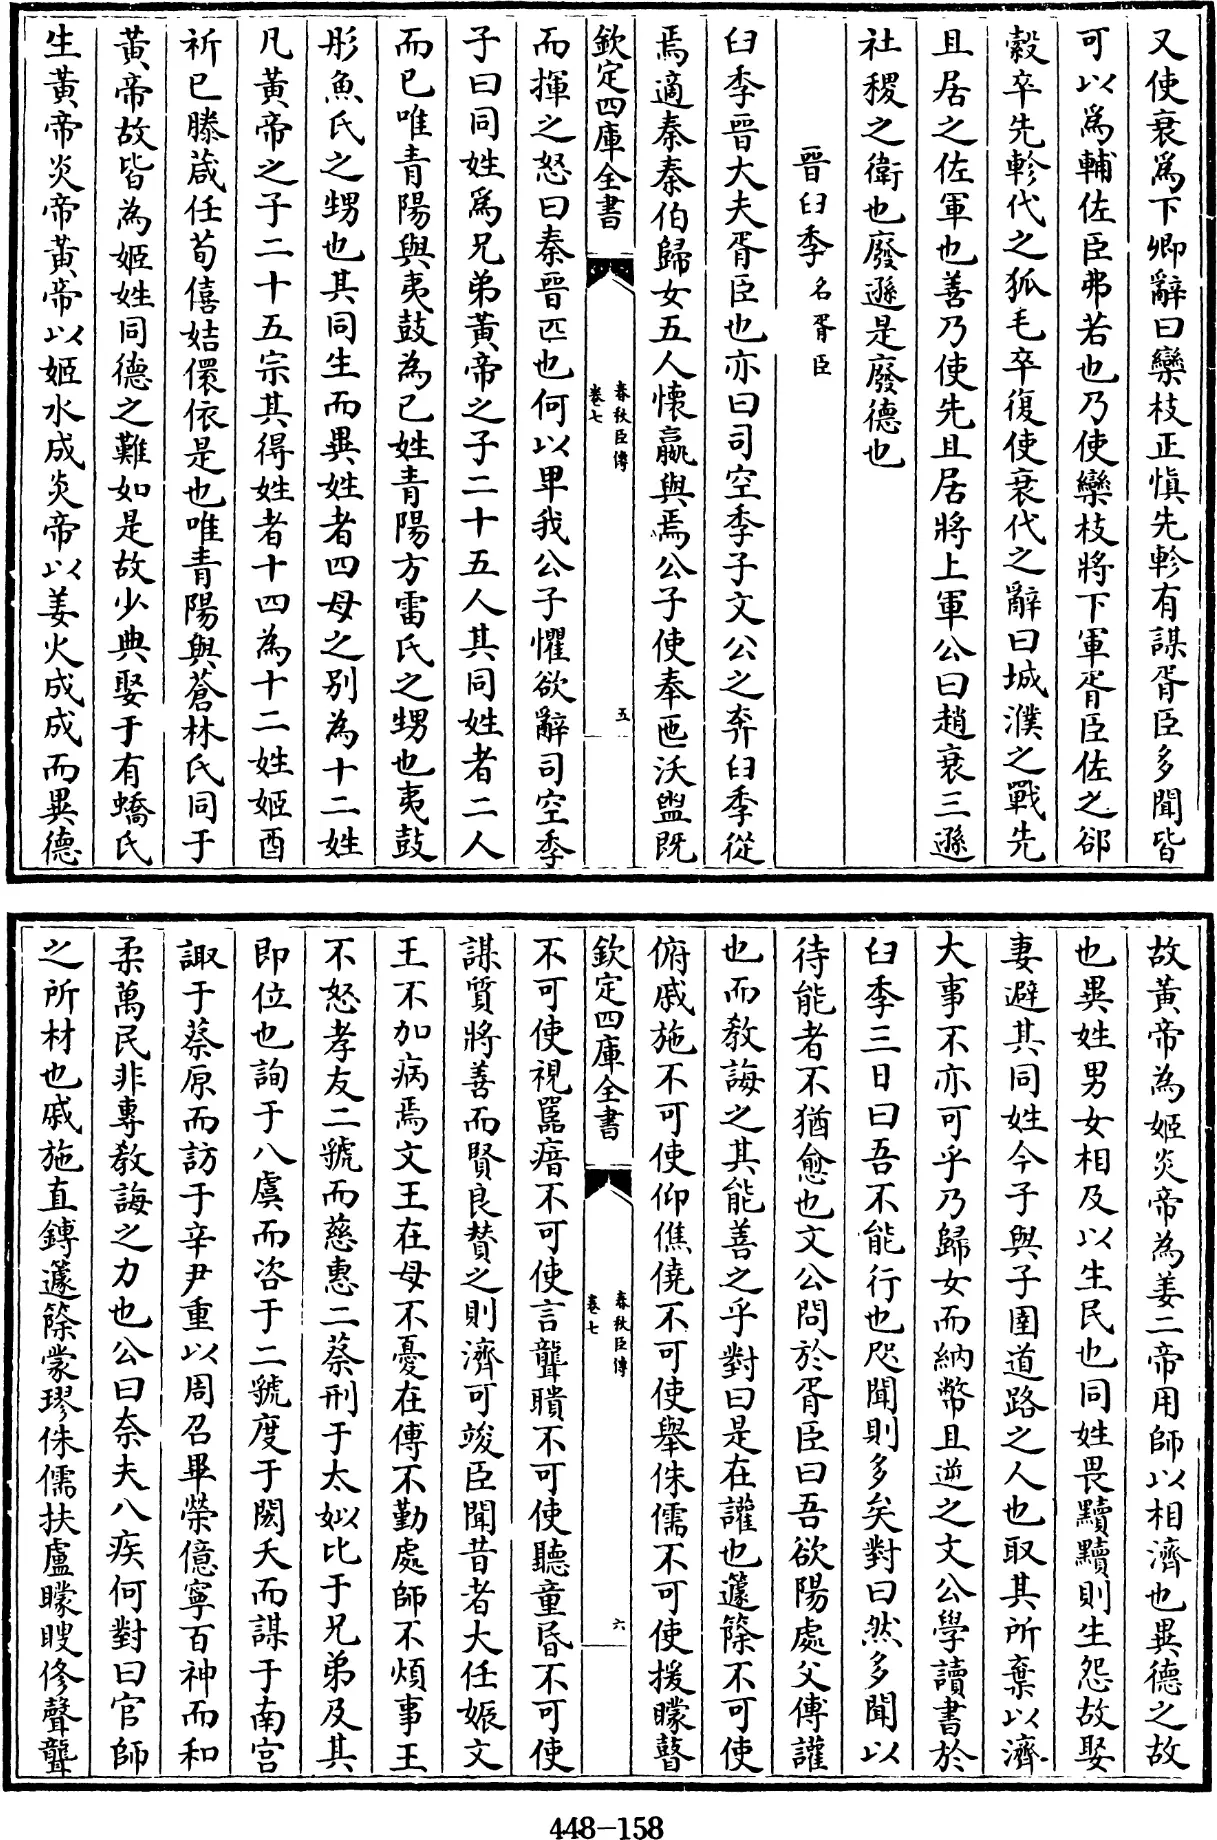 又使衰爲下卿辭曰欒枝正慎先軫有謀胥臣多聞皆
可以爲輔佐臣弗若也乃使欒枝將下軍胥臣佐之郤
縠卒先軫代之狐毛卒復使衰代之辭曰城濮之戰先
且居之佐軍也善乃使先且居將上軍公曰趙衰三遜
社稷之衛也廢遜是廢德也
晉臼季名胥臣
臼季晉大夫胥臣也亦曰司空季子文公之奔臼季從
焉適秦秦伯歸女五人懷嬴與焉公子使奉匜沃盥既
欽定四庫全書
春秋臣傳
卷七
五
而揮之怒曰秦晉匹也何以卑我公子懼欲辭司空季
子曰同姓爲兄弟黃帝之子二十五人其同姓者二人
而已唯青陽與夷鼓為己姓青陽方雷氏之甥也夷鼓
彤魚氏之甥也其同生而異姓者四母之別為十二姓
凡黃帝之子二十五宗其得姓者十四為十二姓姬酉
祈已滕葴任荀僖姞儇依是也唯青陽與蒼林氏同于
黃帝故皆為姬姓同德之難如是故少典娶于有蟜氏
生黃帝炎帝黃帝以姬水成炎帝以姜火成成而異德
故黃帝為姬炎帝為姜二帝用師以相濟也異德之故
也異姓男女相及以生民也同姓畏黷黷則生怨故娶
妻避其同姓今子與子圉道路之人也取其所棄以濟
大事不亦可乎乃歸女而納幣且逆之文公學讀書於
臼季三日曰吾不能行也咫聞則多矣對曰然多聞以
待能者不猶愈也文公問於胥臣曰吾欲陽處父傅讙
也而教誨之其能善之乎對曰是在讙也籧篨不可使
俯戚施不可使仰僬僥不可使舉侏儒不可使援矇瞽
欽定四庫全書
春秋臣傳
卷七
六
不可使視嚚瘖不可使言聾聵不可使聽童昏不可使
謀質將善而賢良贊之則濟可竢臣聞昔者大任娠文
王不加病焉文王在母不憂在傅不勤處師不煩事王
不怒孝友二虢而慈惠二蔡刑于太姒比于兄弟及其
即位也詢于八虞而咨于二虢度于閎夭而謀于南宮
諏于蔡原而訪于辛尹重以周召畢榮億寧百神而和
柔萬民非專教誨之力也公曰奈夫八疾何對曰官師
之所材也戚施直鎛籧篨蒙璆侏儒扶盧矇瞍修聲聾
448-158